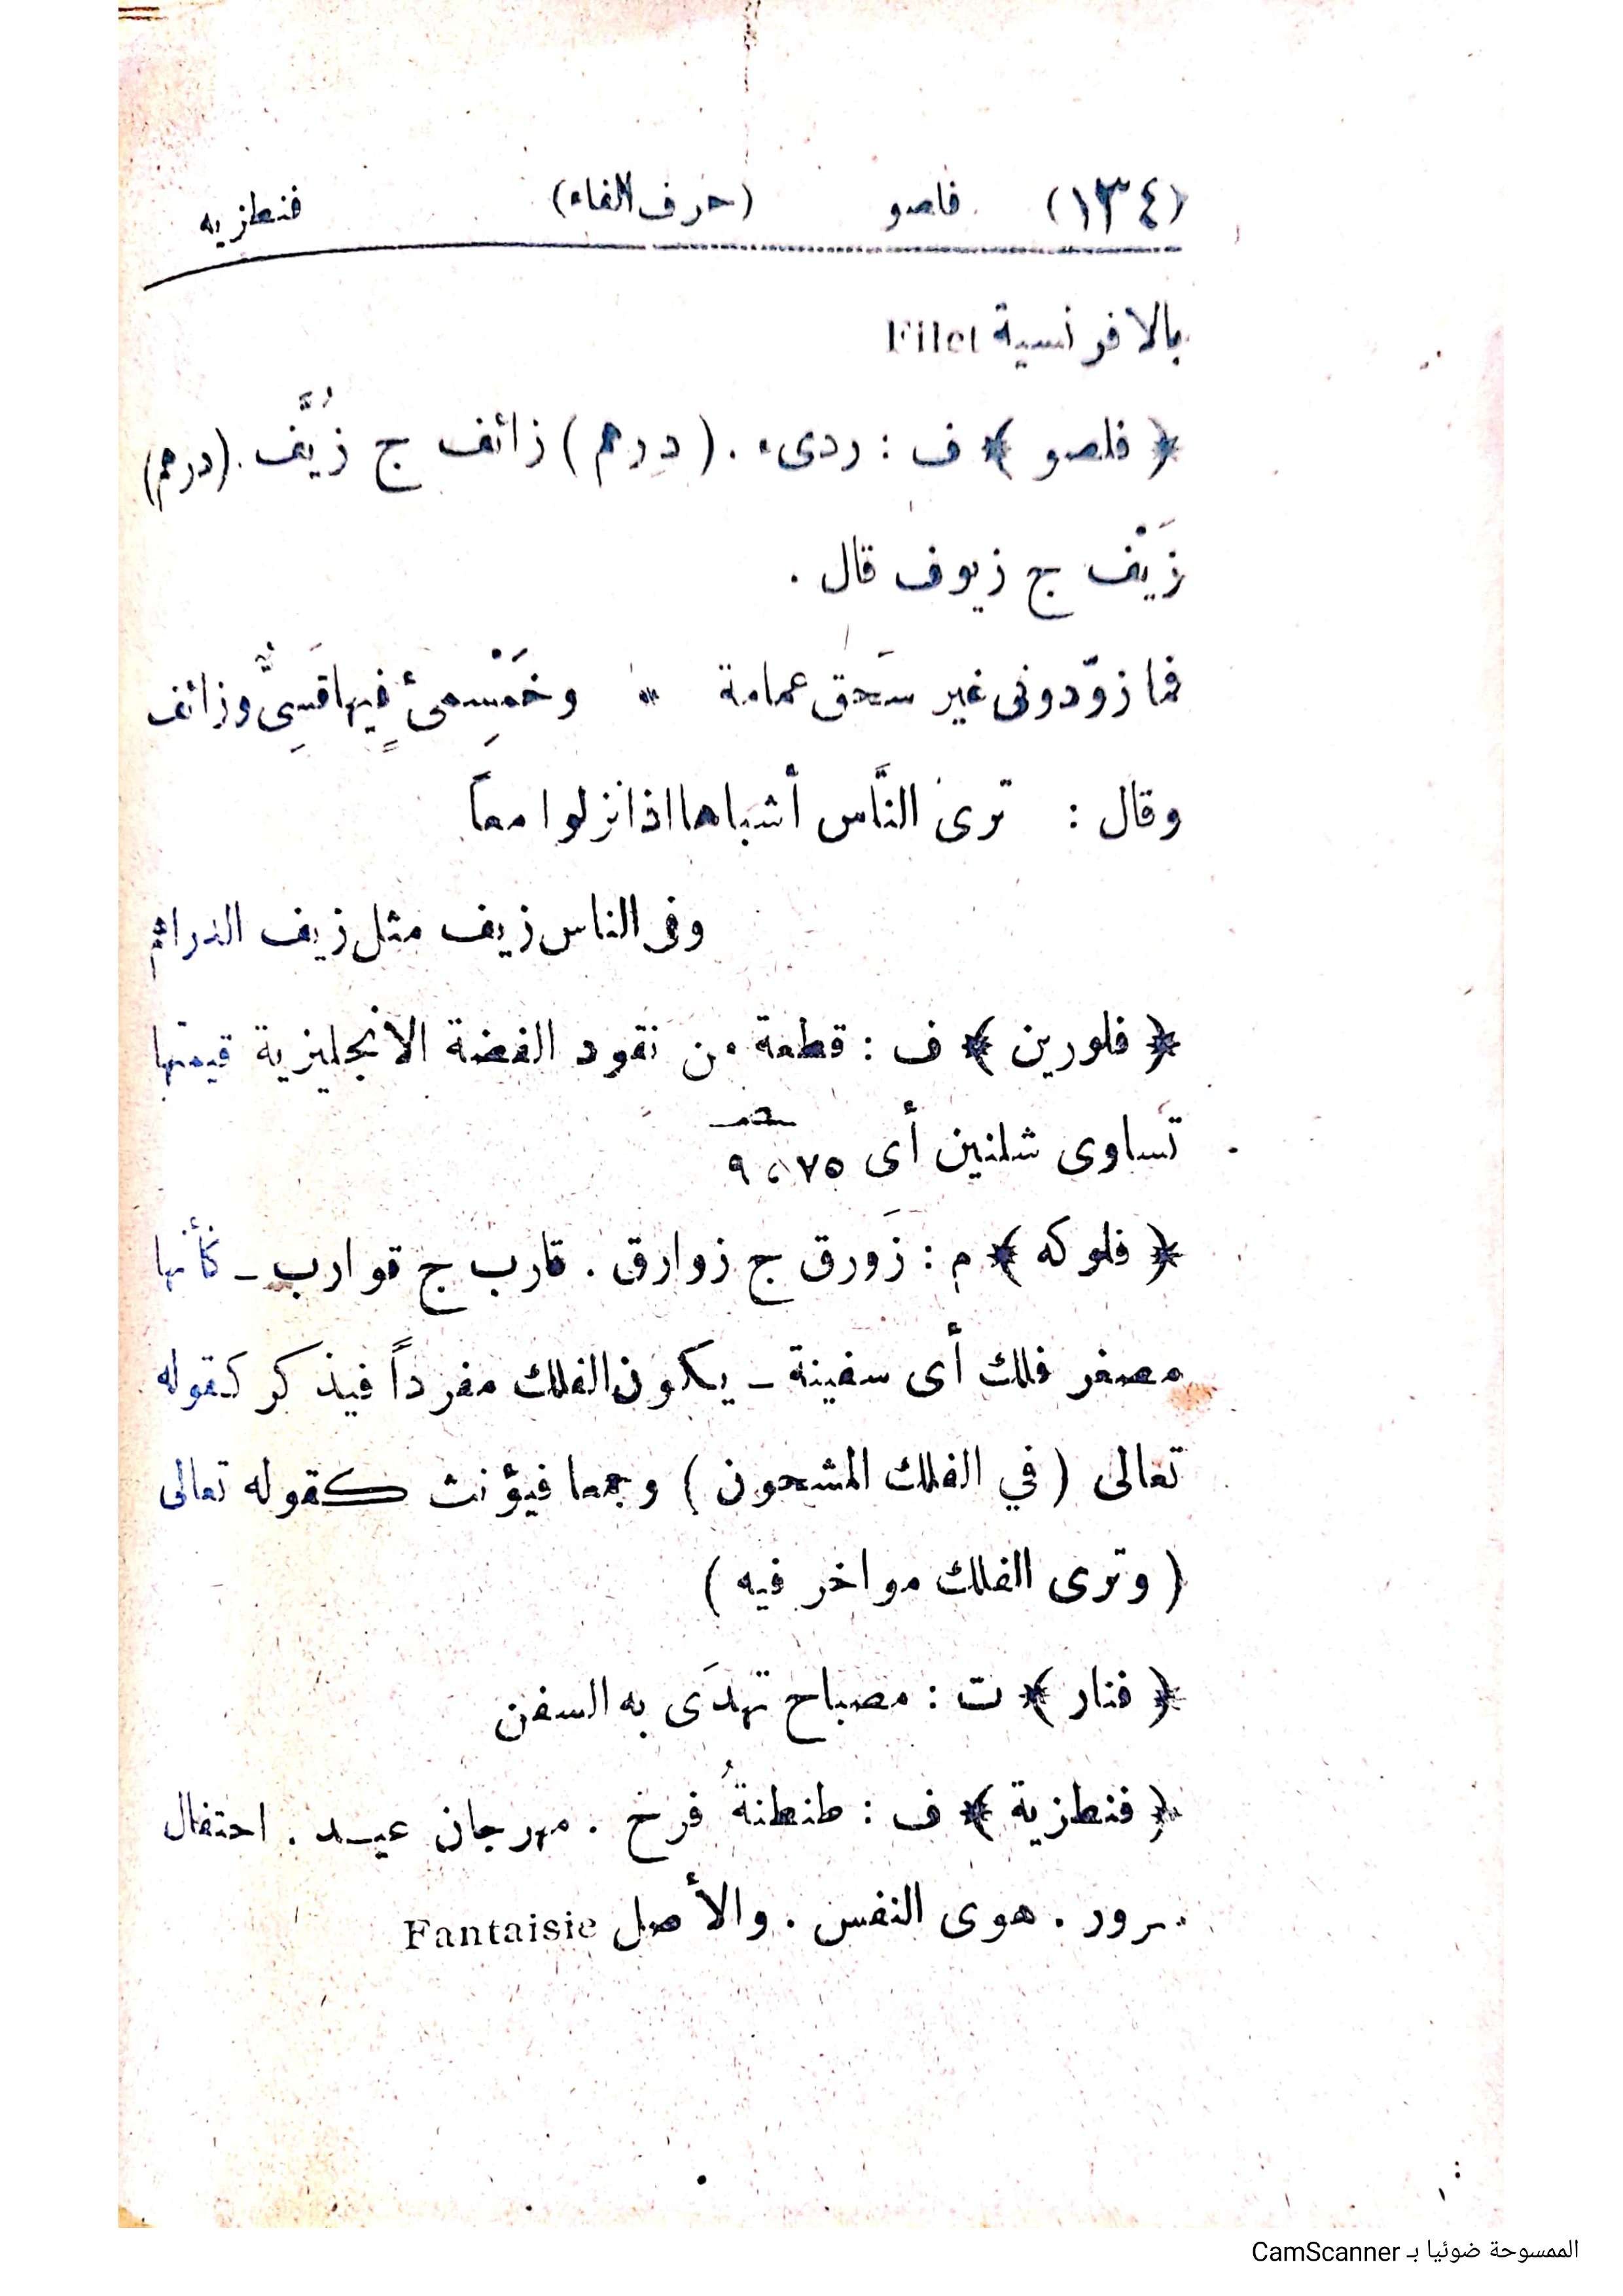 (١٣٤) فلصو (حرف الفاء) فنطزيه
بالافرنسية Filet
﴿ فلصو ﴾ ف : ردىء . ( درهم ) زائف ج زُيَّف . (درهم)
زَيْف ج زيوف قال .
فما زوّدونى غير سَحق عمامة * وخَمْسِمئٍ فيها قَسِىٌّ وزائف
وقال : ترى النَّاس أشباها اذا نزلوا معاً
وفى الناس زيف مثل زيف الدراهم
﴿ فلورين ﴾ ف : قطعة من نقود الفضة الانجليزية قيمتها
تساوى شلنين أى ٩،٧٥
﴿ فلوكه ﴾ م : زَورق ج زوارق . قارب ج قوارب ـ كأنها
مصغر فلك أى سفينة ـ يكون الفلك مفرداً فيذكر كقوله
تعالى ( في الفلك المشحون ) وجمعا فيؤنث كقوله تعالى
( وترى الفلك مواخر فيه )
﴿ فنار ﴾ ت : مصباح تهدَى به السفن
﴿ فنطزية ﴾ ف : طنطنةُ فرح . مهرجان عيد . احتفال
سرور . هوى النفس . والأصل Fantaisie
الممسوحة ضوئيا بـ CamScanner